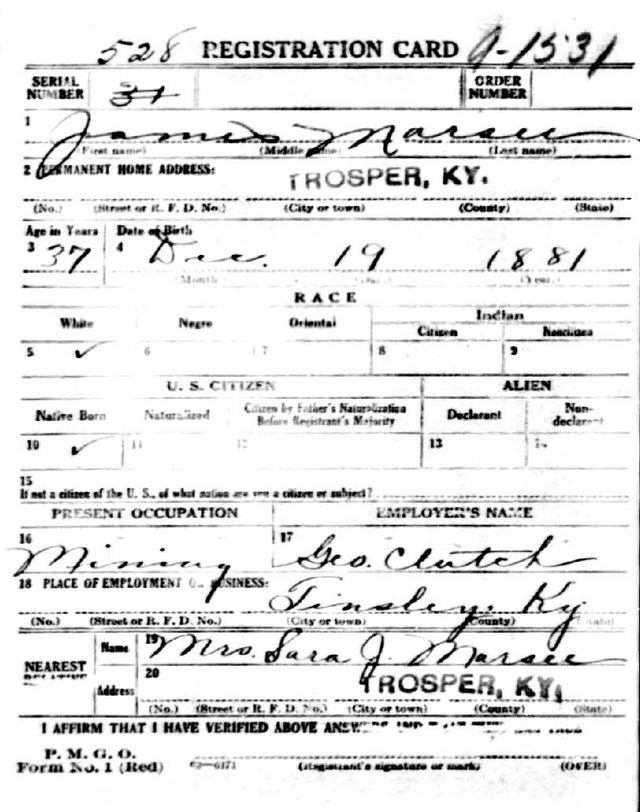 528 REGISTRATION CARD A-1531
SERIAL NUMBER 31 ORDER NUMBER
1 James Marsee
(First name) (Middle name) (Last name)
2 PERMANENT HOME ADDRESS: TROSPER, KY.
(No.) (Street or R. F. D. No.) (City or town) (County) (State)
Age in Years Date of Birth
3 37 4 Dec. 19 1881
(Month) (Day) (Year)
RACE
White Negro Oriental Indian
Citizen Noncitizen
5 ✓ 6 7 8 9
U. S. CITIZEN ALIEN
Native Born Naturalized Citizen by Father's Naturalization Before Registrant's Majority Declarant Non-declarant
10 ✓ 11 12 13 14
15
If not a citizen of the U. S., of what nation are you a citizen or subject?
PRESENT OCCUPATION EMPLOYER'S NAME
16 Mining 17 Geo. Clutch
18 PLACE OF EMPLOYMENT OR BUSINESS:
Tinsley, Ky
(No.) (Street or R. F. D. No.) (City or town) (County) (State)
NEAREST RELATIVE Name 19 Mrs. Sara J. Marsee
Address 20 TROSPER, KY.
(No.) (Street or R. F. D. No.) (City or town) (County) (State)
I AFFIRM THAT I HAVE VERIFIED ABOVE
P. M. G. O.
Form No. 1 (Red) (Registrant's signature or mark) (OVER)